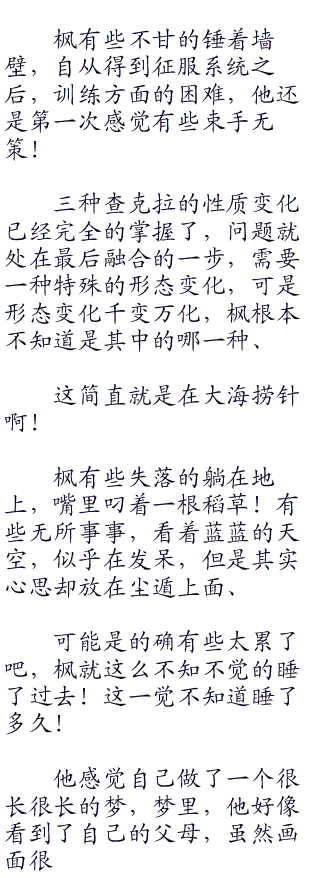 枫有些不甘的锤着墙
壁，自从得到征服系统之
后，训练方面的困难，他还
是第一次感觉有些束手无
策！
三种查克拉的性质变化
已经完全的掌握了，问题就
处在最后融合的一步，需要
一种特殊的形态变化，可是
形态变化千变万化，枫根本
不知道是其中的哪一种、
这简直就是在大海捞针
啊！
枫有些失落的躺在地
上，嘴里叼着一根稻草！有
些无所事事，看着蓝蓝的天
空，似乎在发呆，但是其实
心思却放在尘遁上面、
可能是的确有些太累了
吧，枫就这么不知不觉的睡
了过去！这一觉不知道睡了
多久！
他感觉自己做了一个很
长很长的梦，梦里，他好像
看到了自己的父母，虽然画
面很